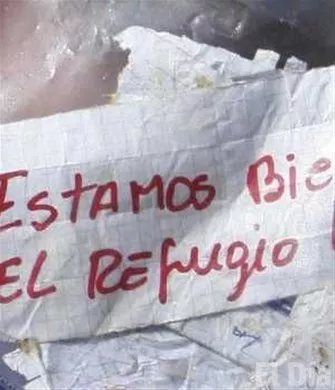 ESTAMOS BIE
EL REFUGIO